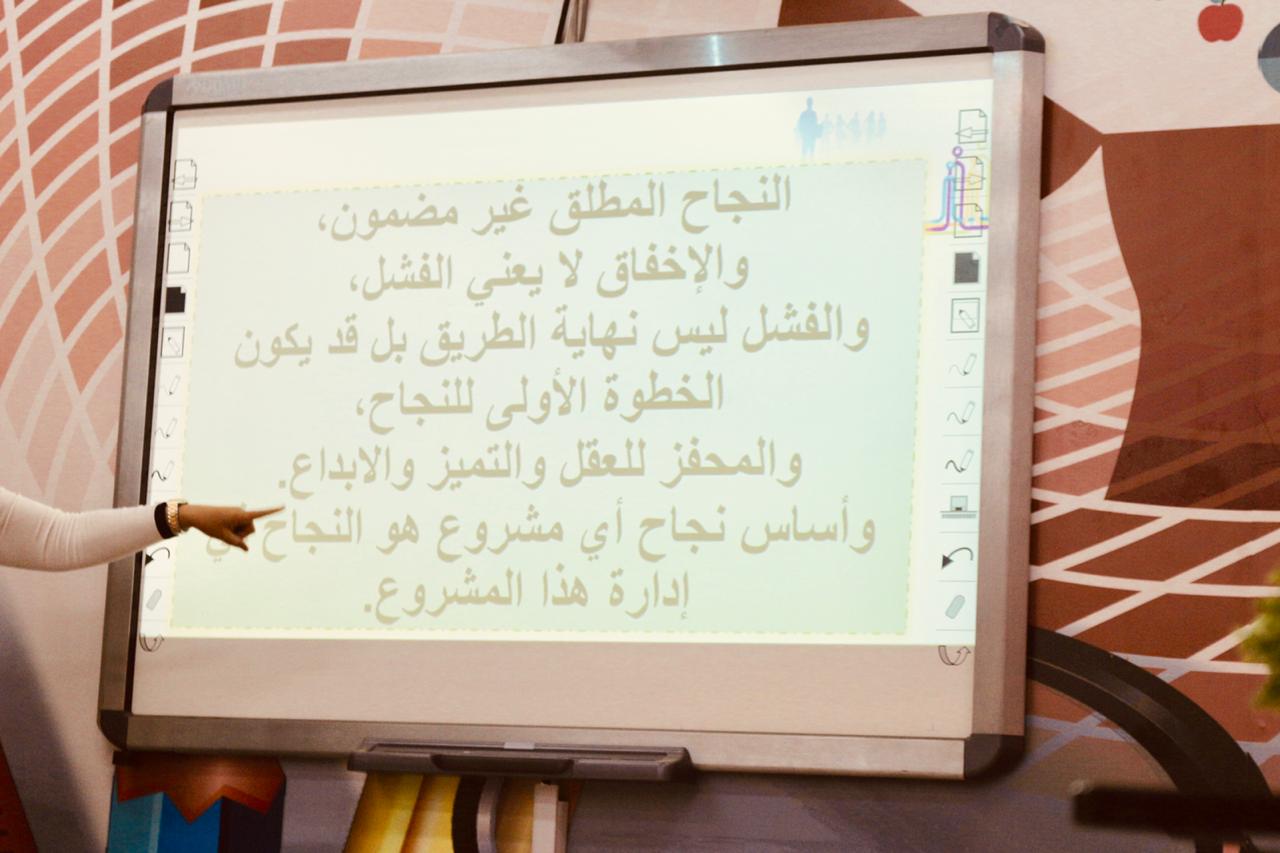 النجاح المطلق غير مضمون،
والإخفاق لا يعني الفشل،
والفشل ليس نهاية الطريق بل قد يكون
الخطوة الأولى للنجاح،
والمحفز للعقل والتميز والابداع.
وأساس نجاح أي مشروع هو النجاح
إدارة هذا المشروع.